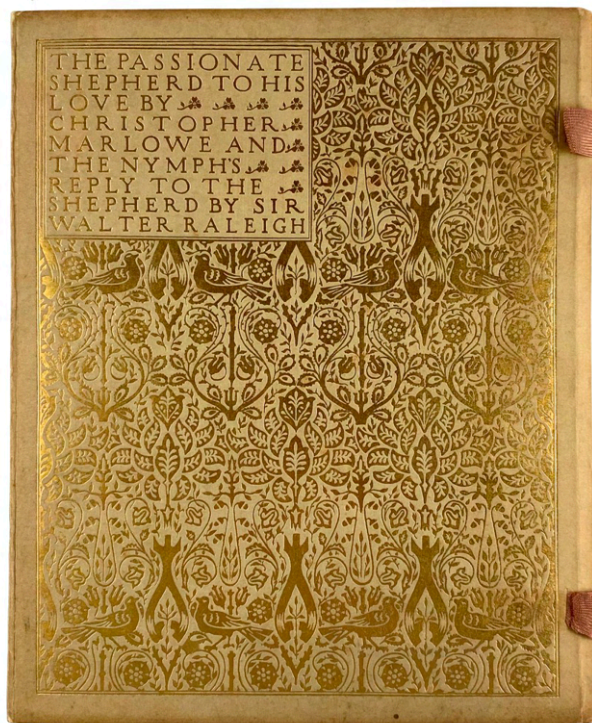 THE PASSIONATE
SHEPHERD TO HIS
LOVE BY
CHRISTOPHER
MARLOWE AND
THE NYMPH'S
REPLY TO THE
SHEPHERD BY SIR
WALTER RALEIGH